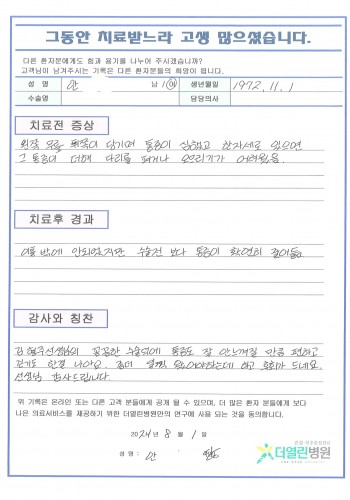 그동안 치료받느라 고생 많으셨습니다.
다른 환자분에게도 힘과 용기를 나누어 주시겠습니까?
고객님이 남겨주시는 기록은 다른 환자분들의 희망이 됩니다.
성 명 안 남 / 여 생년월일 1972. 11. 1
수술명 담당의사
치료전 증상
왼쪽 무릎 뒤쪽이 당기며 통증이 심했고 한자세로 있으면
그 통증이 더해 다리를 펴거나 오므리기가 어려웠음.
치료후 경과
하루밖에 안되었지만 수술전 보다 통증이 확연히 줄어듦.
감사와 칭찬
꼼꼼한 수술덕에 통증도 잘 안느껴질 만큼 편하고
걷기도 한결 나아요. 좀더 일찍 왔어야하는데 하고 후회가 드네요.
선생님 감사드립니다.
위 기록은 온라인 또는 다른 고객 분들에게 공개 될 수 있으며, 더 많은 환자 분들에게 보다
나은 의료서비스를 제공하기 위한 더열린병원만의 연구에 사용 되는 것을 동의합니다.
2024 년 8 월 1 일
성 명 : 안
더열린병원